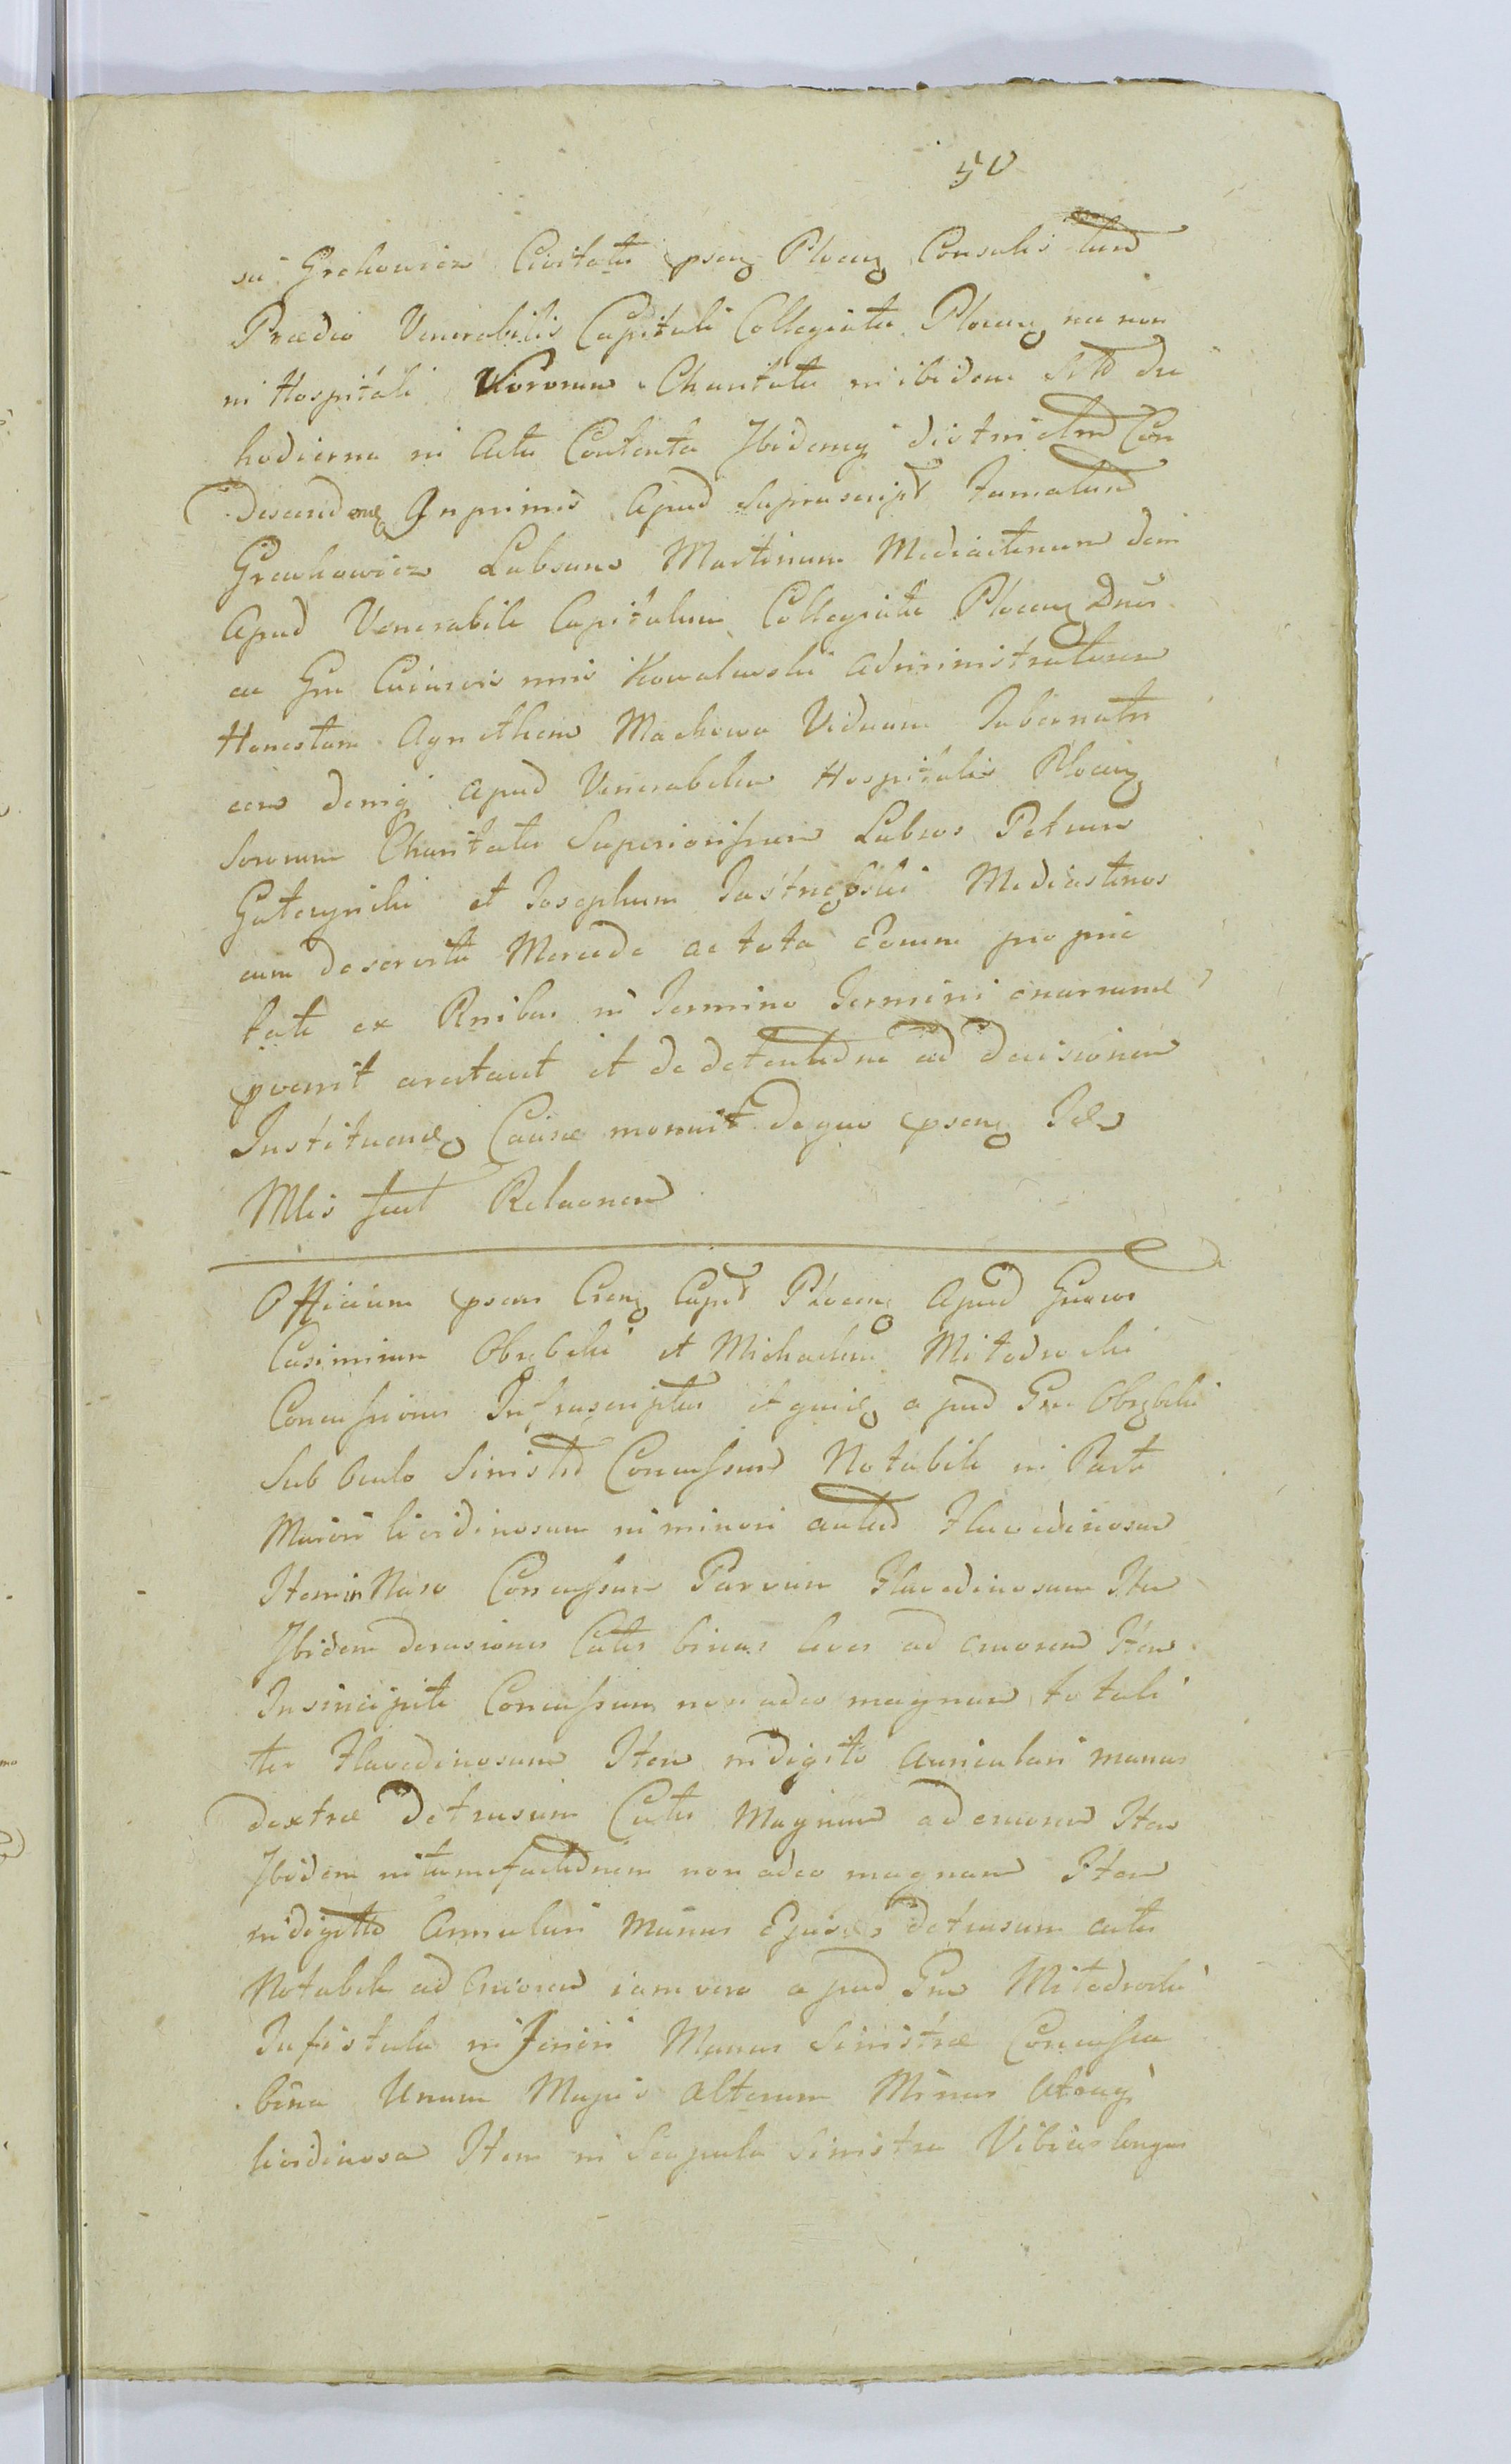 50
su Grehowicz Civitatis pseng Ploceng Consulis tum
Prædio Venerabilis Capituli Collegiatæ Ploceng nec non
in Hospitali Sororum Charitatis in ibidem Sito die
hodierna in Actu Contenta Ibidemq districtim Con
Descendenq Inprimis Apud Suprascript Famatum
Grechowicz Labsum Martinum Mediastinum dein
Apud Venerabile Capitulum Collegiatæ Ploceng Dnos
ac Gm Kowalewski Administratorem
Honestam Agnethem Machowa Viduam Tabernatri
cem deniq Apud Venerabilem Hospitalis Ploceng
Sororum Charitatis Superiorissam Labsos Petrum
Gateynski et Josephum Jastrzębski Mediastinos
cum deservita Mercede ac tota Eorum proprie
tate ex Rnibus in Termino Termini enarrand
pvenit arestavit et de detentione ad decisionem
Instituend Causæ monuit dequo pseng Idem
Mlis fecit Relaonem
Officium psens Crens Capt Plocens Apud Gnosos
Casimirum Obrębski et Michaelem Mitodrocki
Concussiones Infrascriptas et quid apud Gm Obrębski
Sub Oculo Sinistro Concussum Notabile in Parte
Maiori lividinosum in minori autem Flavedinosum
Item in Naso Concussum Parvum Flavedinosum Item
Ibidem derasiones Cutis binas leves ad cruorem Item
In sincipite Concussum non adeo magnum totali
ter Flavedinosum Item in digito Auriculari manus
dextræ Detrusum Cutis Magnum ad cruorem Item
Ibidem intumefactionem non adeo magnam Item
in digitto Annulari Manus Ejusd detrusum cutis
Notabile ad Cruorem iam vero apud Gm Mitodrocki
In fistula in Manus Sinistræ Concussa
bina Unum Majus Alterum Minus Utrumq
lividinosa Item in Scapula Sinistra Vibices longas